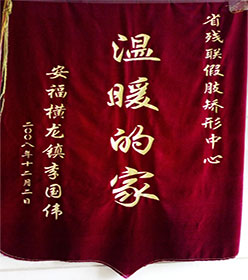 省残联假肢矫形中心
温暖的家
安福横龙镇李国伟
二〇〇八年十二月二日